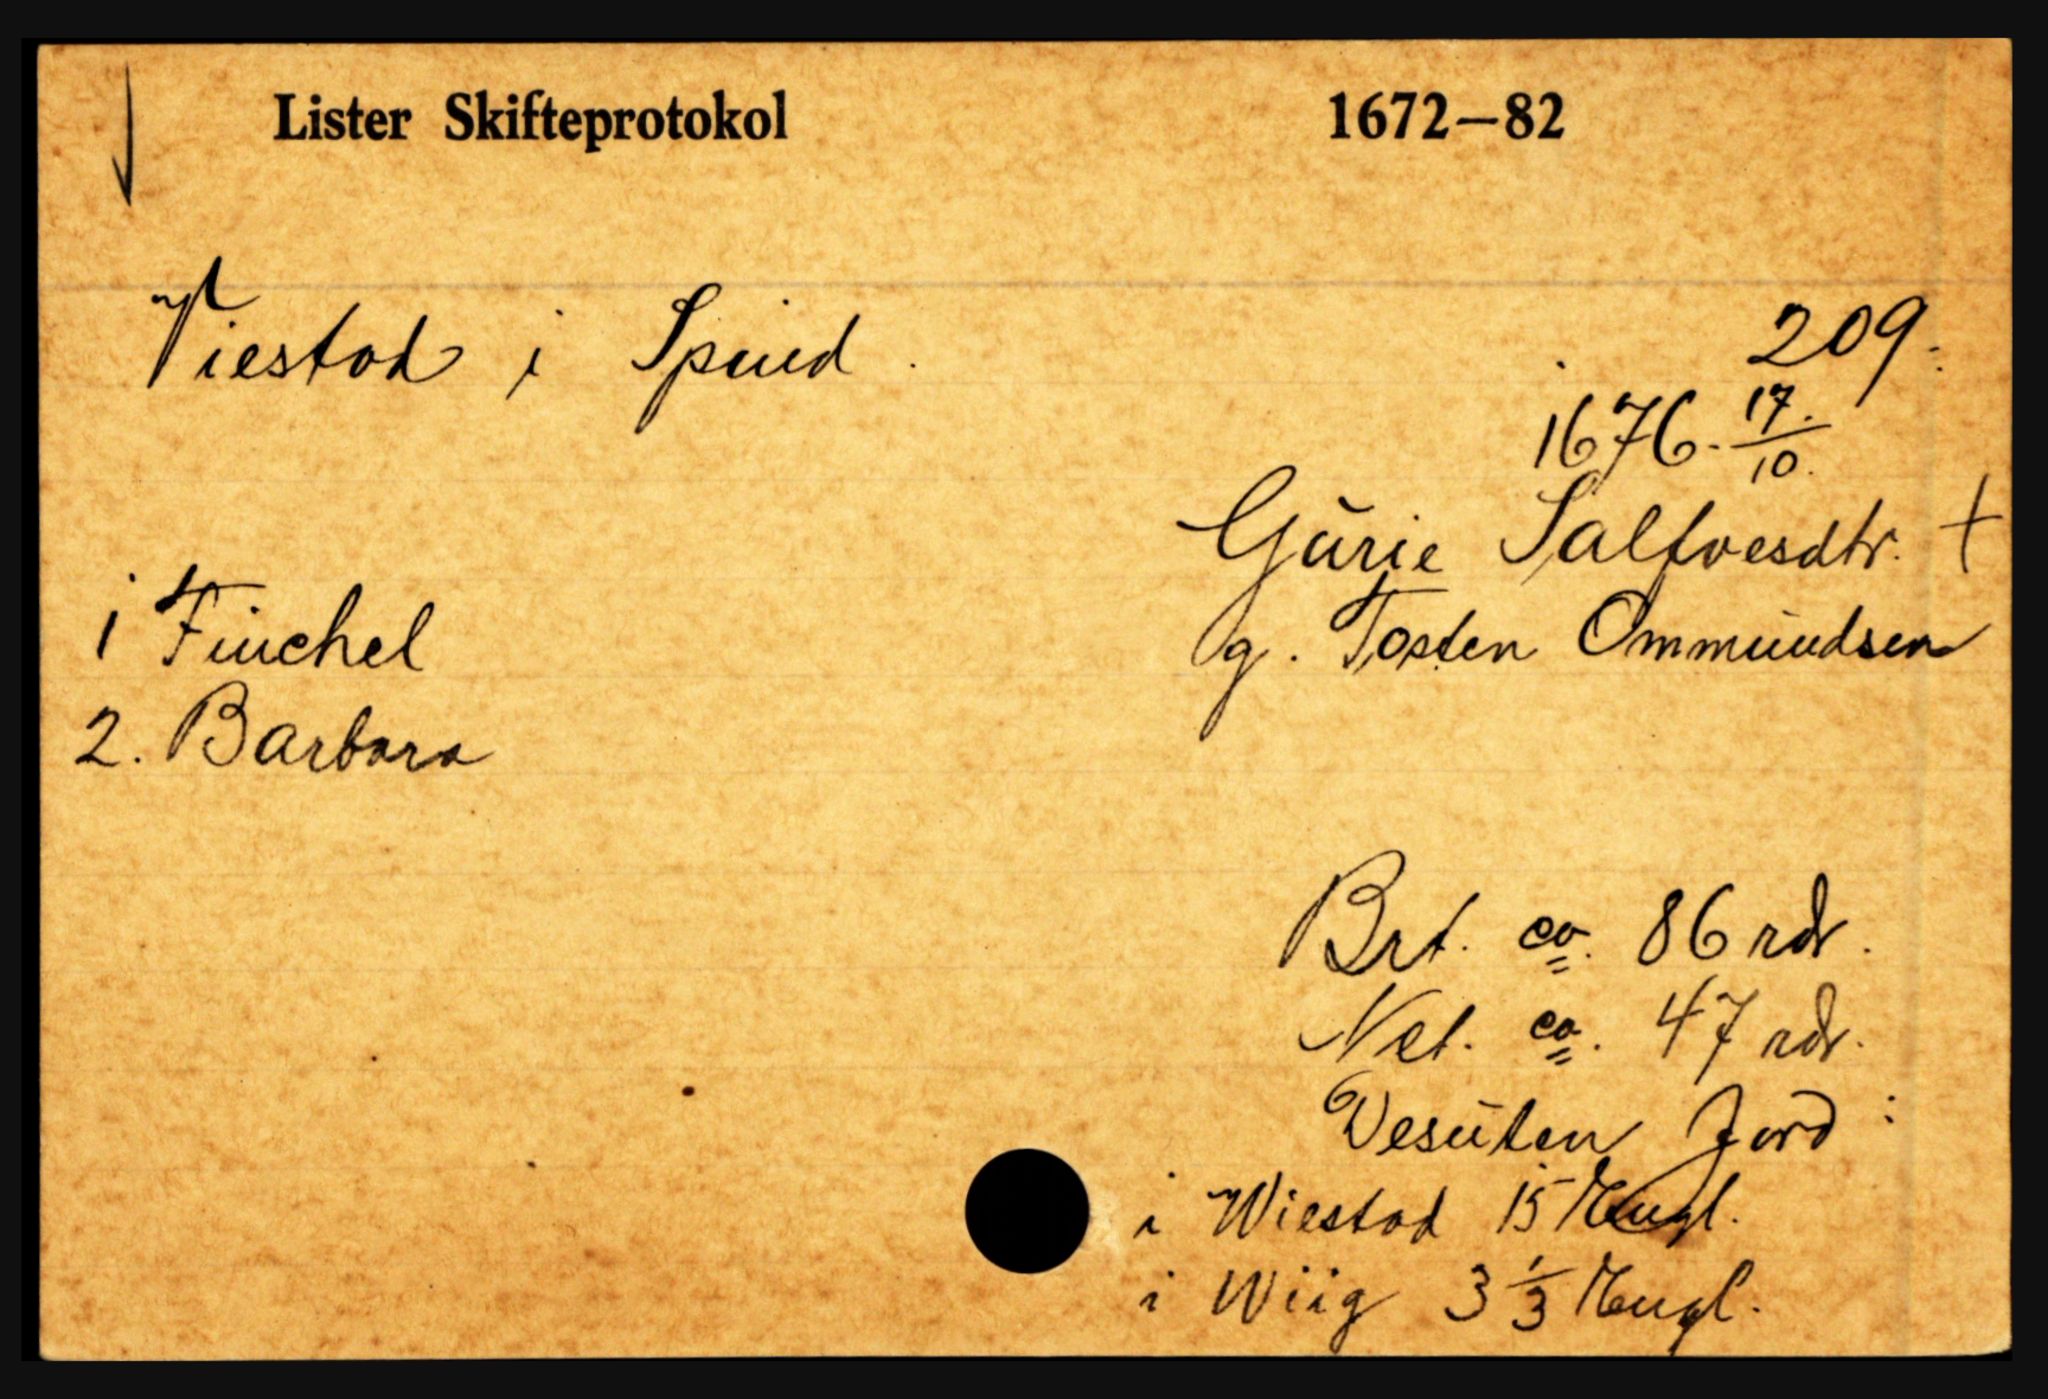 Lister Skifteprotokol 1672—82
Viestad i Spind.
209.
1676. 17./10.
Gürie Salfvesdtr. +
1 Finchel
g. Tosten Ommündsen
2. Barbara
Brt. ca. 86 rdr.
Net. ca. 47 rdr.
Desüten Jord :
i Wiestad 15 Engl.
i Wiig 3 1/3 Engl.